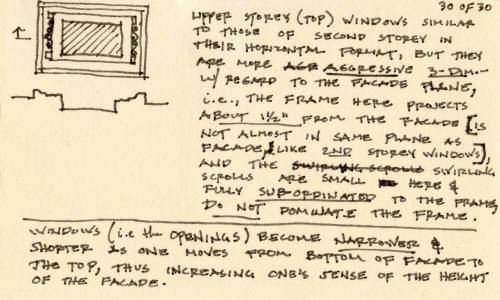 30 OF 30
UPPER STOREY (TOP) WINDOWS SIMILAR
TO THOSE OF SECOND STOREY IN
THEIR HORIZONTAL FORMAT, BUT THEY
ARE MORE AGGRESSIVE 3-DIM.
W/ REGARD TO THE FACADE PLANE,
i.e., THE FRAME HERE PROJECTS
ABOUT 1½" FROM THE FACADE [IS
NOT ALMOST IN SAME PLANE AS
FACADE, LIKE 2ND STOREY WINDOWS],
AND THE SWIRLING SCROLLS SWIRLING
SCROLLS ARE SMALL HERE &
FULLY SUB-ORDINATED TO THE FRAME,
DO NOT DOMINATE THE FRAME.
WINDOWS (i.e the OPENINGS) BECOME NARROWER &
SHORTER AS ONE MOVES FROM BOTTOM OF FACADE TO
THE TOP, THUS INCREASING ONE'S SENSE OF THE HEIGHT
OF THE FACADE.